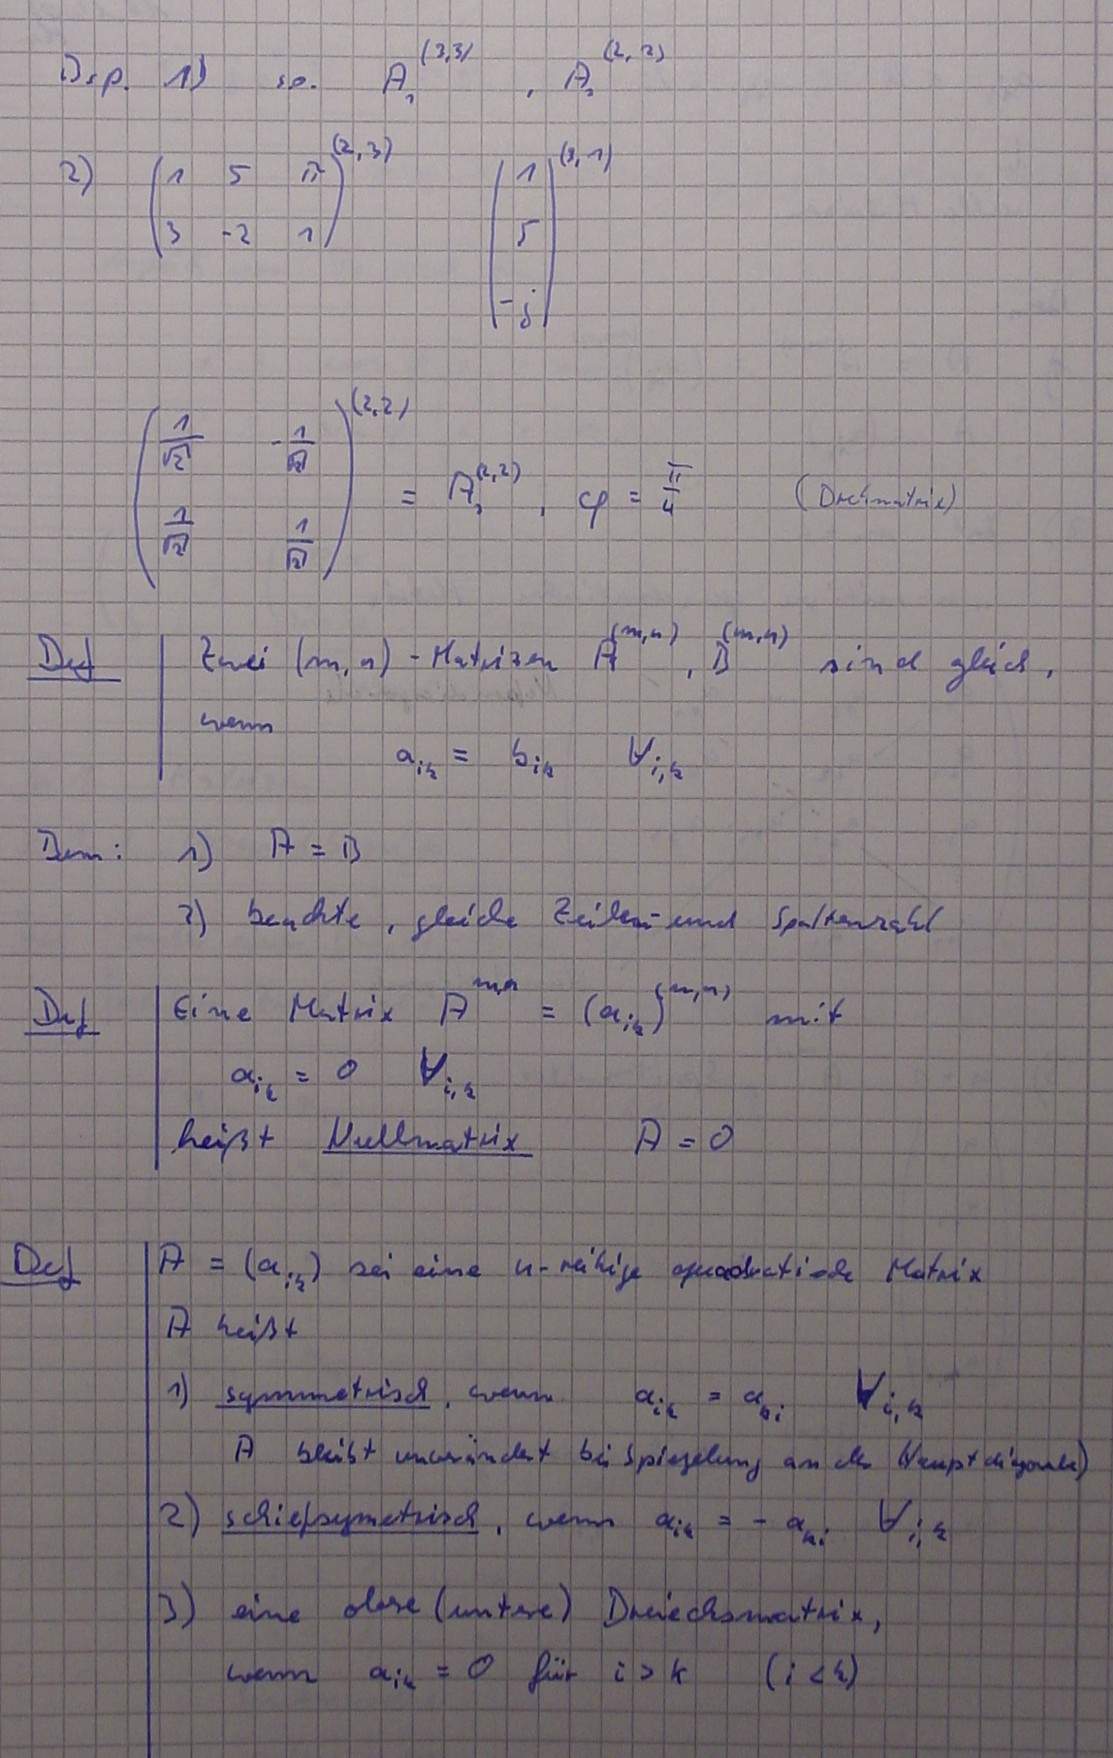 Bsp. 1) so. A₁^(3,3) , A₂^(2,2)
2) ( 1 5 π )^(2,3) ( 1 )^(3,1)
( 3 -2 1 ) ( 5 )
( -j )
( 1/√2 -1/√2 )^(2,2)
= A₂^(2,2) , φ = π/4 (Drehmatrix)
( 1/√2 1/√2 )
Def Zwei (m,n) - Matrizen A^(m,n) , B^(m,n) sind gleich,
wenn
a_ik = b_ik ∀i,k
Bem: 1) A = B
2) beachte, gleiche Zeilen- und Spaltenzahl
Def Eine Matrix A^m,n = (a_ik)^(m,n) mit
a_ik = 0 ∀i,k
heißt Nullmatrix A = 0
Def A = (a_ik) sei eine n-reihige quadratische Matrix
A heißt
1) symmetrisch, wenn a_ik = a_ki ∀i,k
A bleibt unverändert bei Spiegelung an der Hauptdiagonale)
2) schiefsymetrisch, wenn a_ik = - a_ki ∀i,k
3) eine obere (untere) Dreiecksmatrix,
wenn a_ik = 0 für i > k (i < k)